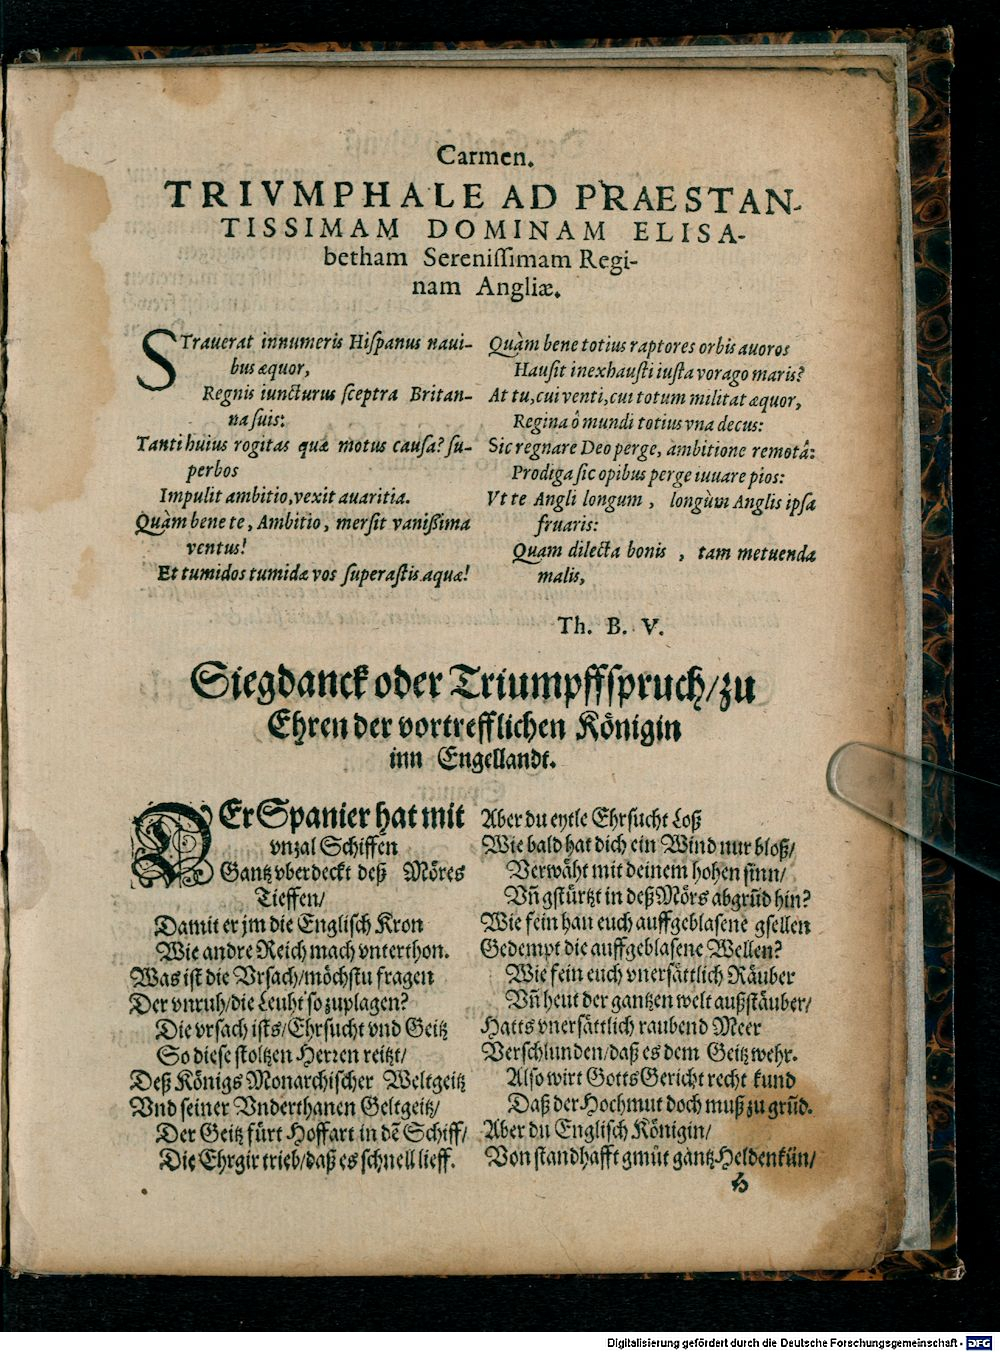 Carmen.
TRIVMPHALE AD PRAESTAN-
TISSIMAM DOMINAM ELISA-
betham Sereniſſimam Regi-
nam Angliæ.
STrauerat innumeris Hiſpanus naui-
bus æquor,
Regnis iuncturus ſceptra Britan-
na ſuis:
Tanti huius rogitas quæ motus cauſa? ſu-
perbos
Impulit ambitio, vexit auaritia.
Quàm bene te, Ambitio, merſit vanißima
ventus!
Et tumidos tumidæ vos ſuperaſtis aquæ!
Quàm bene totius raptores orbis auoros
Hauſit inexhauſti iuſta vorago maris?
At tu, cui venti, cui totum militat æquor,
Regina ô mundi totius vna decus:
Sic regnare Deo perge, ambitione remotâ:
Prodiga ſic opibus perge iuuare pios:
Vt te Angli longum, longùm Anglis ipſa
fruaris:
Quam dilecta bonis, tam metuenda
malis,
Th. B. V.
Siegdanck oder Triumpffſpruch/zu
Ehren der vortrefflichen Königin
inn Engellandt.
DEr Spanier hat mit
vnzal Schiffen
Gantz vberdeckt deß Möres
Tieffen/
Damit er jm die Engliſch Kron
Wie andre Reich mach vnterthon.
Was iſt die Vrſach/möchſtu fragen
Der vnruh/die Leuht ſo zuplagen?
Die vrſach iſts/Ehrſucht vnd Geitz
So dieſe ſtoltzen Herren reitzt/
Deß Königs Monarchiſcher Weltgeitz
Vnd ſeiner Vnderthanen Geltgeitz/
Der Geitz fürt Hoffart in dẽ Schiff/
Die Ehrgir trieb/daß es ſchnell lieff.
Aber du eytle Ehrſucht Loß
Wie bald hat dich ein Wind nur bloß/
Verwäht mit deinem hohen ſinn/
Vñ gſtürtzt in deß Mörs abgrũd hin?
Wie fein han euch auffgeblaſene gſellen
Gedempt die auffgeblaſene Wellen?
Wie fein euch vnerſättlich Räuber
Vñ heut der gantzen welt außſtäuber/
Hatts vnerſättlich raubend Meer
Verſchlunden/daß es dem Geitz wehr.
Alſo wirt Gotts Gericht recht kund
Daß der Hochmut doch muß zu grũd.
Aber du Engliſch Königin/
Von ſtandhafft gmüt gantz Heldenkün/
H
Digitalisierung gefördert durch die Deutsche Forschungsgemeinschaft - DFG